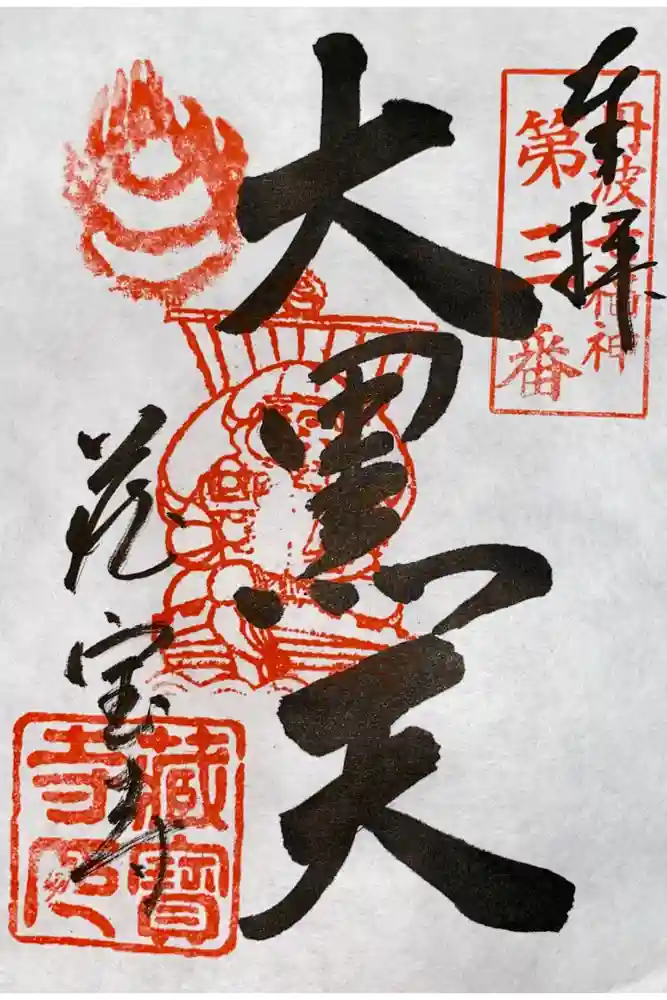 奉拝
丹波七福神
第三番
大黒天
蔵宝寺
藏寶寺印